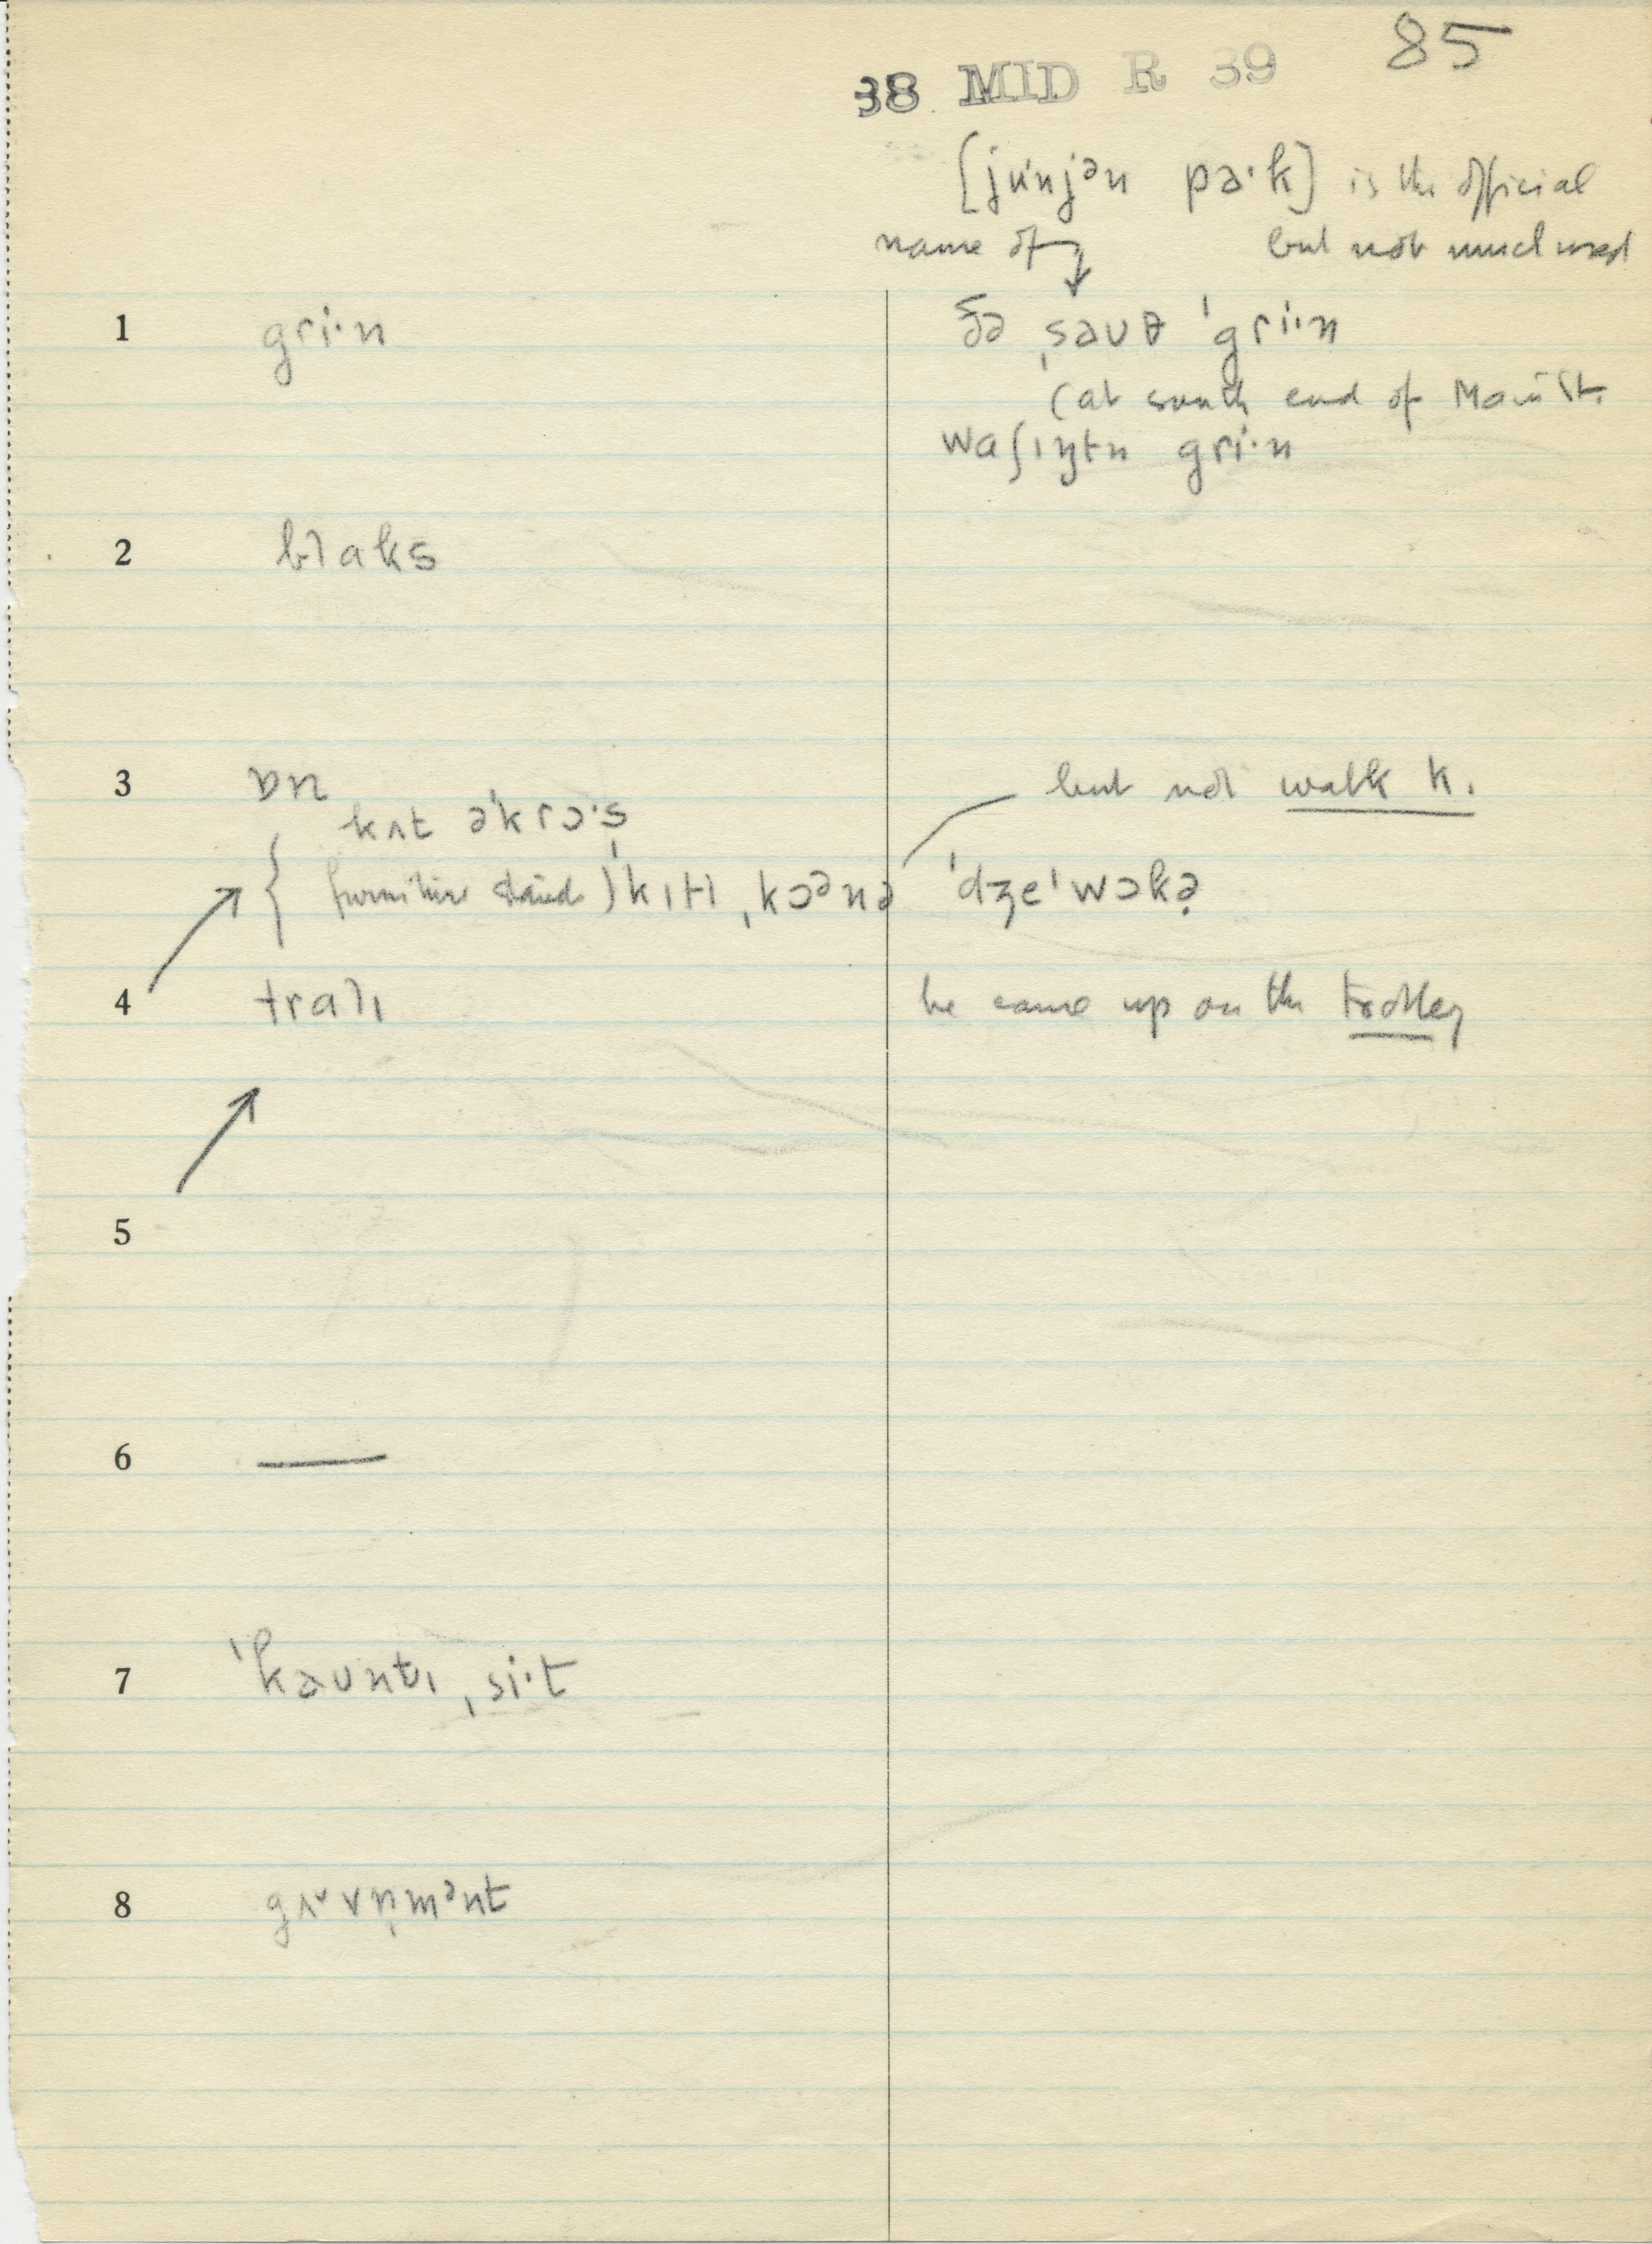 85
38 MID R 39
[ju'njən pɑ·k] is the official
name of but not much used
1 gri·n ðə ˌsaʊθ ˈgri·n
(at south end of Main St.
waʃɪŋtn gri·n
2 blaks
3 ɒn but not walk k.
kʌt əˈkrɔ·s
{ furniture stands) ˈkɪtɪ ˌkɔənə ˈdʒeˈwɔkə
4 tralɪ he came up on the trolley
5
6 —
7 ˈkaʊntɪ ˌsi·t
8 gʌvṇmənt